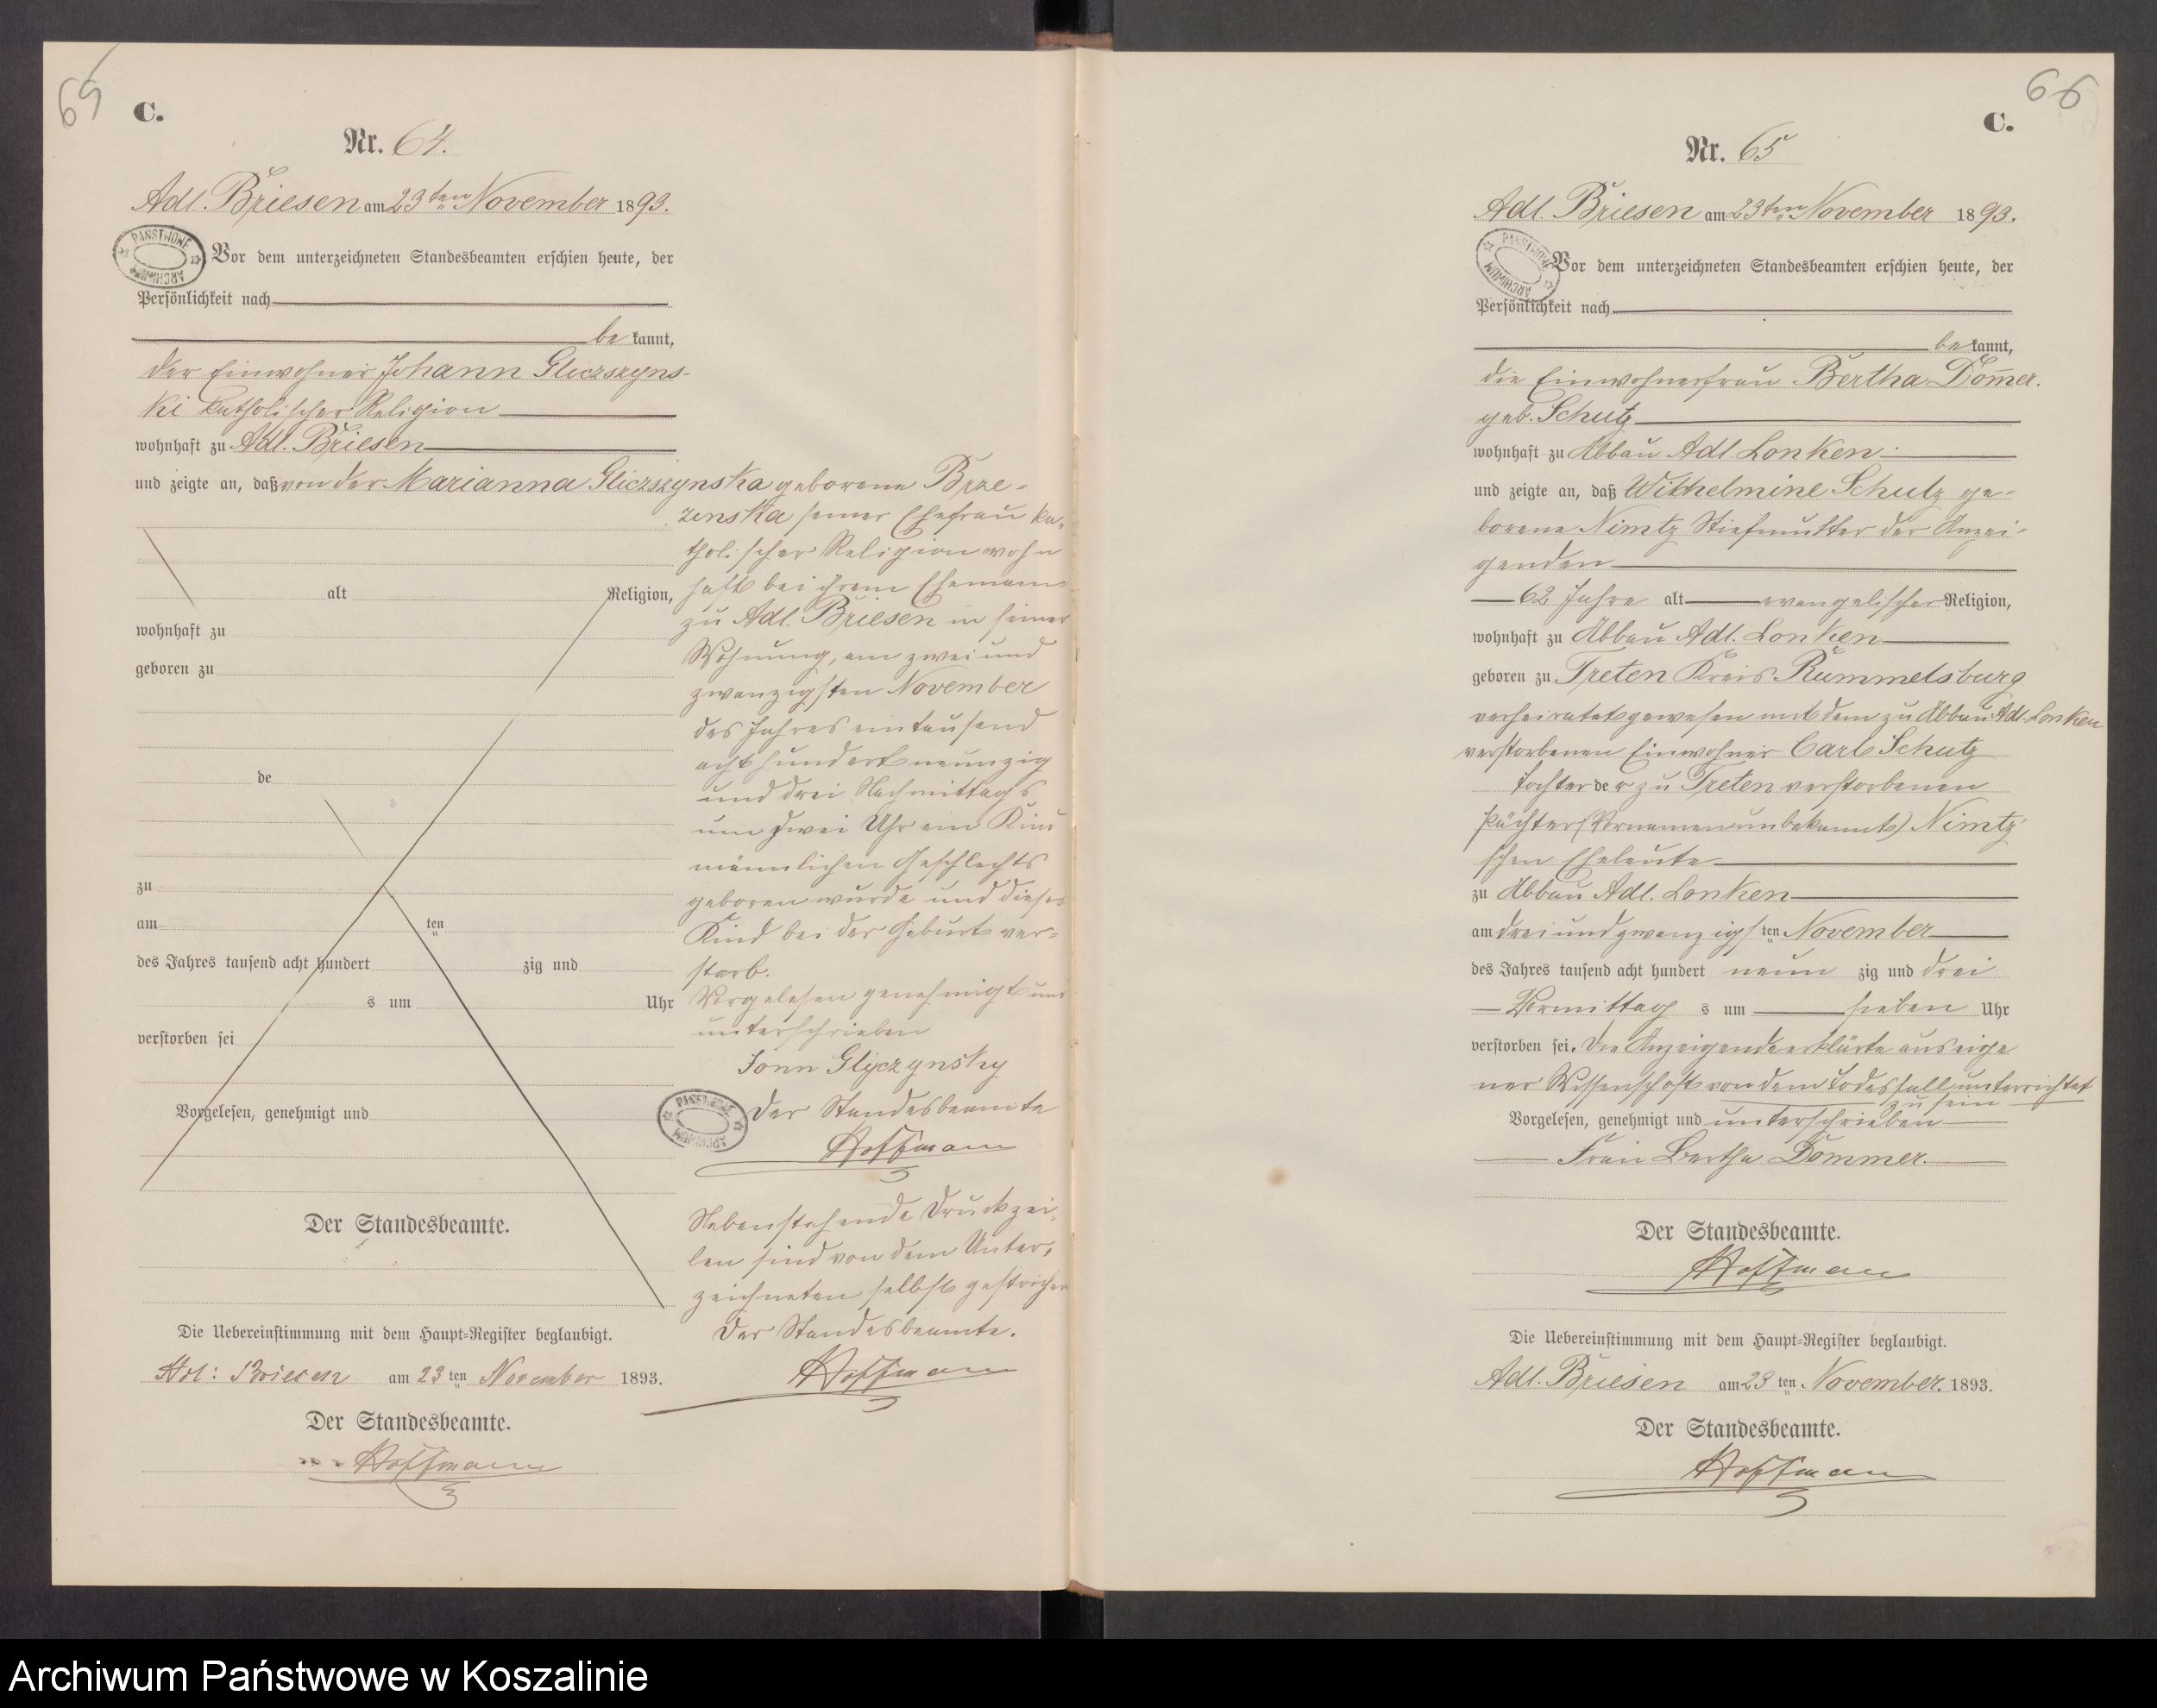 65
C.
Nr. 64.
Adl. Briesen am 23ten November 1893.
PAŃSTWOWE ARCHIWUM
Vor dem unterzeichneten Standesbeamten erschien heute, der
Persönlichkeit nach
be kannt,
der Einwohner Johann Gliczszyns-
ki katholischer Religion
wohnhaft zu Adl. Briesen
und zeigte an, daß von der Marianna Gliczszynska geborene Brze-
zenska seiner Ehefrau ka-
tholischer Religion wohn
alt Religion, haft bei ihrem Ehemann
zu Adl. Briesen in seiner
wohnhaft zu
Wohnung, am zwei und
geboren zu
zwanzigsten November
des Jahres eintausend
acht hundert neunzig
de
und drei Nachmittags
um zwei Uhr ein Kind
männlichen Geschlechts
zu
geboren wurde und dieses
am ten
Kind bei der Geburt ver-
des Jahres tausend acht hundert zig und
storb.
s um Uhr
Vorgelesen genehmigt und
unterschrieben
verstorben sei
Jonn Glyczynsky
Vorgelesen, genehmigt und
PAŃSTWOWE ARCHIWUM
Der Standesbeamte
Hoffmann
Nebenstehende Druckzei-
Der Standesbeamte.
len sind von dem Unter-
zeichneten selbst gestrichen
Der Standesbeamte.
Hoffmann
Die Uebereinstimmung mit dem Haupt-Register beglaubigt.
Adl: Briesen am 23 ten November 1893.
Der Standesbeamte.
Hoffmann
66
C.
Nr. 65
Adl. Briesen am 23ten November 1893.
PAŃSTWOWE ARCHIWUM
Vor dem unterzeichneten Standesbeamten erschien heute, der
Persönlichkeit nach
be kannt,
die Einwohnerfrau Bertha Dom̄er.
geb. Schutz
wohnhaft zu Abbau Adl. Lonken
und zeigte an, daß Wilhelmine Schulz ge-
borene Nimtz Stiefmutter der Anzei-
genden
62 Jahre alt evangelischer Religion,
wohnhaft zu Abbau Adl. Lonken
geboren zu Treten Kreis Rummelsburg
verheiratet gewesen mit dem zu Abbau Adl. Lonken
verstorbenen Einwohner Carl Schutz
Tochter de r zu Treten verstorbenen
Pächter (Vornamen unbekannt) Nimtz'
schen Eheleute
zu Abbau Adl. Lonken
am drei und zwanzigs ten November
des Jahres tausend acht hundert neun zig und drei
Vormittag s um sieben Uhr
verstorben sei. Die Anzeigende erklärte aus eige
ner Wissenschaft von dem Todesfall unterrichtet
zu sein
Vorgelesen, genehmigt und unterschrieben
Frau Bertha Dommer.
Der Standesbeamte.
Hoffmann
Die Uebereinstimmung mit dem Haupt-Register beglaubigt.
Adl. Briesen am 23 ten November. 1893.
Der Standesbeamte.
Hoffmann
Archiwum Państwowe w Koszalinie